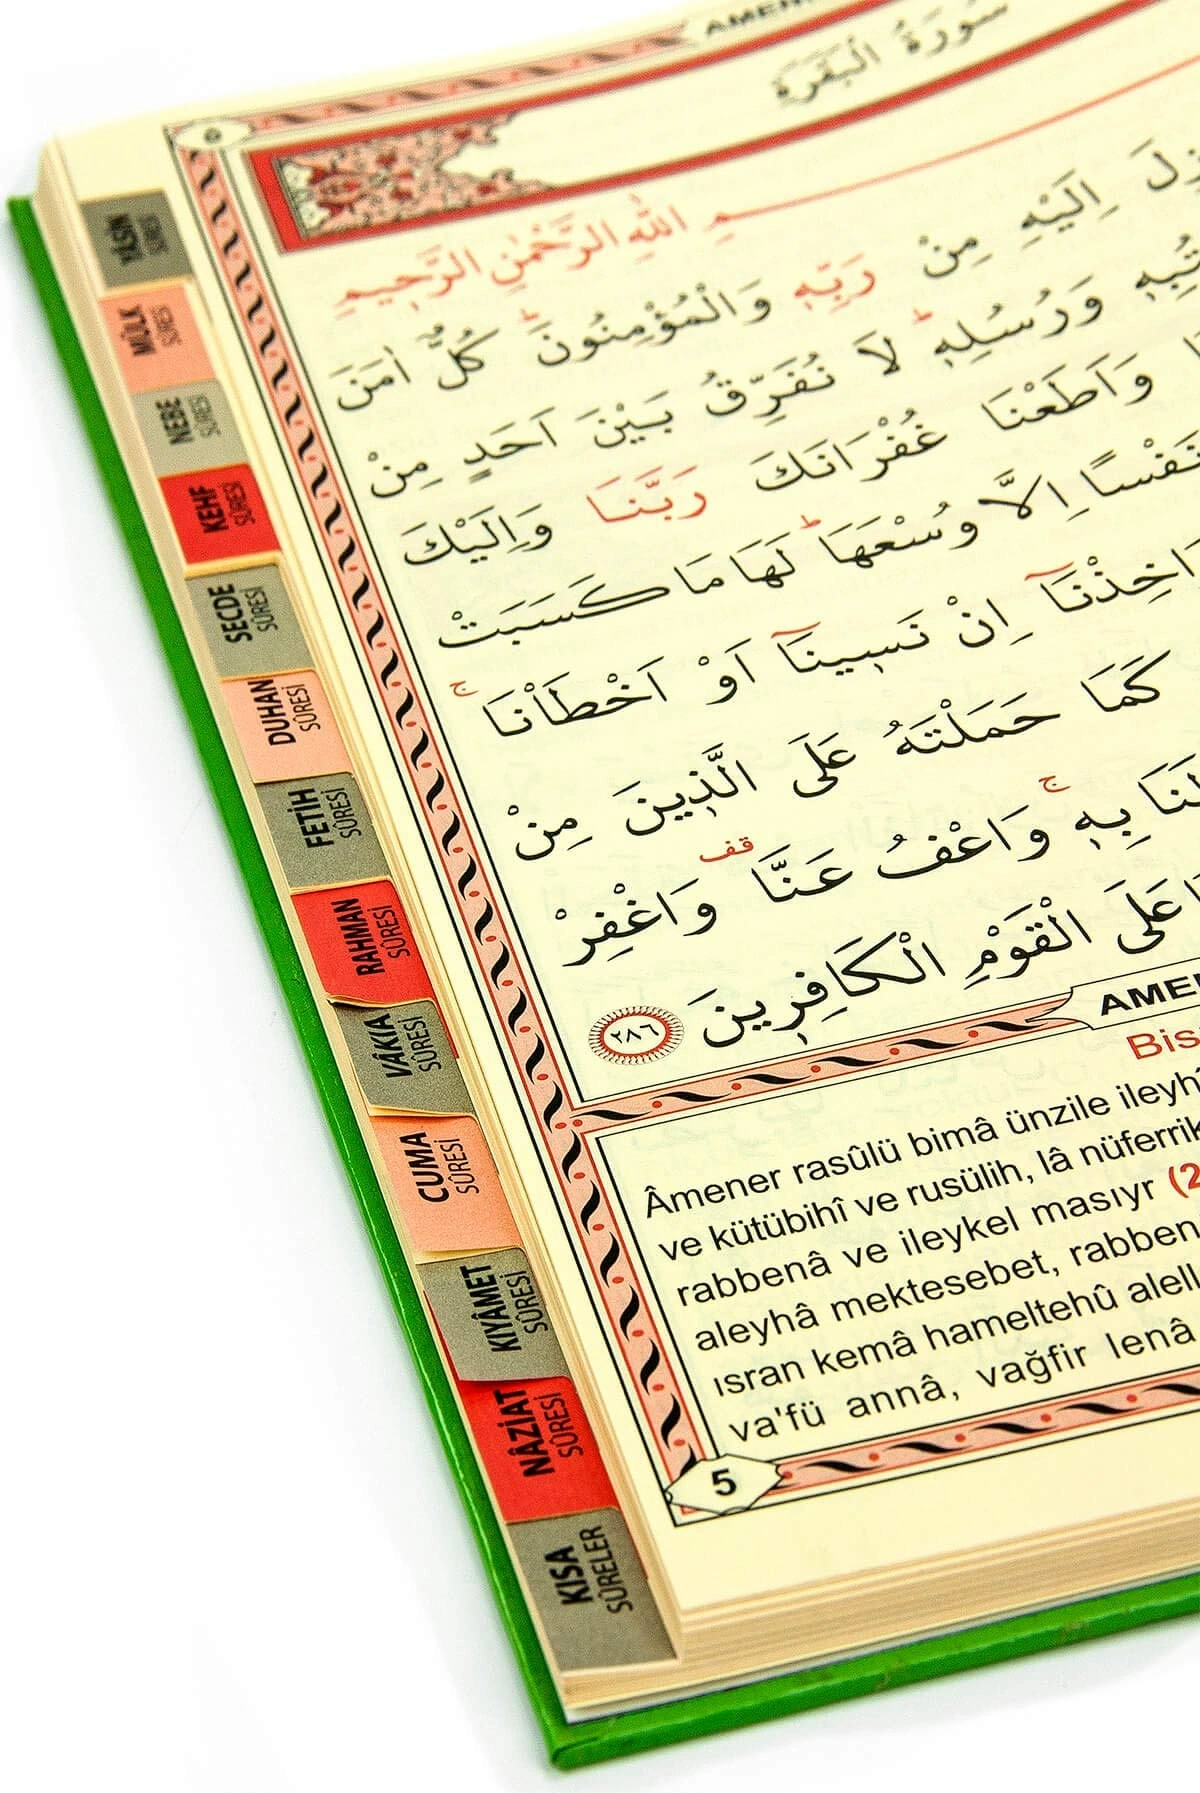 AMENE
سُورَةُ الْبَقَرَةِ
٥
ـمِ اللّٰهِ الرَّحْمٰنِ الرَّحٖيمِ
اِلَيْهِ مِنْ رَبِّهٖ وَالْمُؤْمِنُونَۜ كُلٌّ اٰمَنَ
وَرُسُلِهٖۜ لَا نُفَرِّقُ بَيْنَ اَحَدٍ مِنْ
وَاَطَعْنَا غُفْرَانَكَ رَبَّنَا وَاِلَيْكَ
نَفْسًا اِلَّا وُسْعَهَاۜ لَهَا مَا كَسَبَتْ
اِنْ نَسٖينَٓا اَوْ اَخْطَاْنَاۚ
كَمَا حَمَلْتَهُ عَلَى الَّذٖينَ مِنْ
لَنَا بِهٖۚ وَاعْفُ عَنَّا۠ وَاغْفِرْ
عَلَى الْقَوْمِ الْكَافِرٖينَ ﴿٢٨٦﴾
AMENE
Bis
Âmener rasûlü bimâ ünzile ileyh
ve kütübihî ve rusülih, lâ nüferrik
rabbenâ ve ileykel masıyr (2
aleyhâ mektesebet, rabben
ısran kemâ hameltehû alell
va'fü annâ, vağfir lenâ
5
YÂSÎN
SÛRESİ
MÜLK
SÛRESİ
NEBE
SÛRESİ
KEHF
SÛRESİ
SECDE
SÛRESİ
DUHAN
SÛRESİ
FETİH
SÛRESİ
RAHMAN
SÛRESİ
VÂKIA
SÛRESİ
CUMA
SÛRESİ
KIYÂMET
SÛRESİ
NÂZİAT
SÛRESİ
KISA
SÛRELER